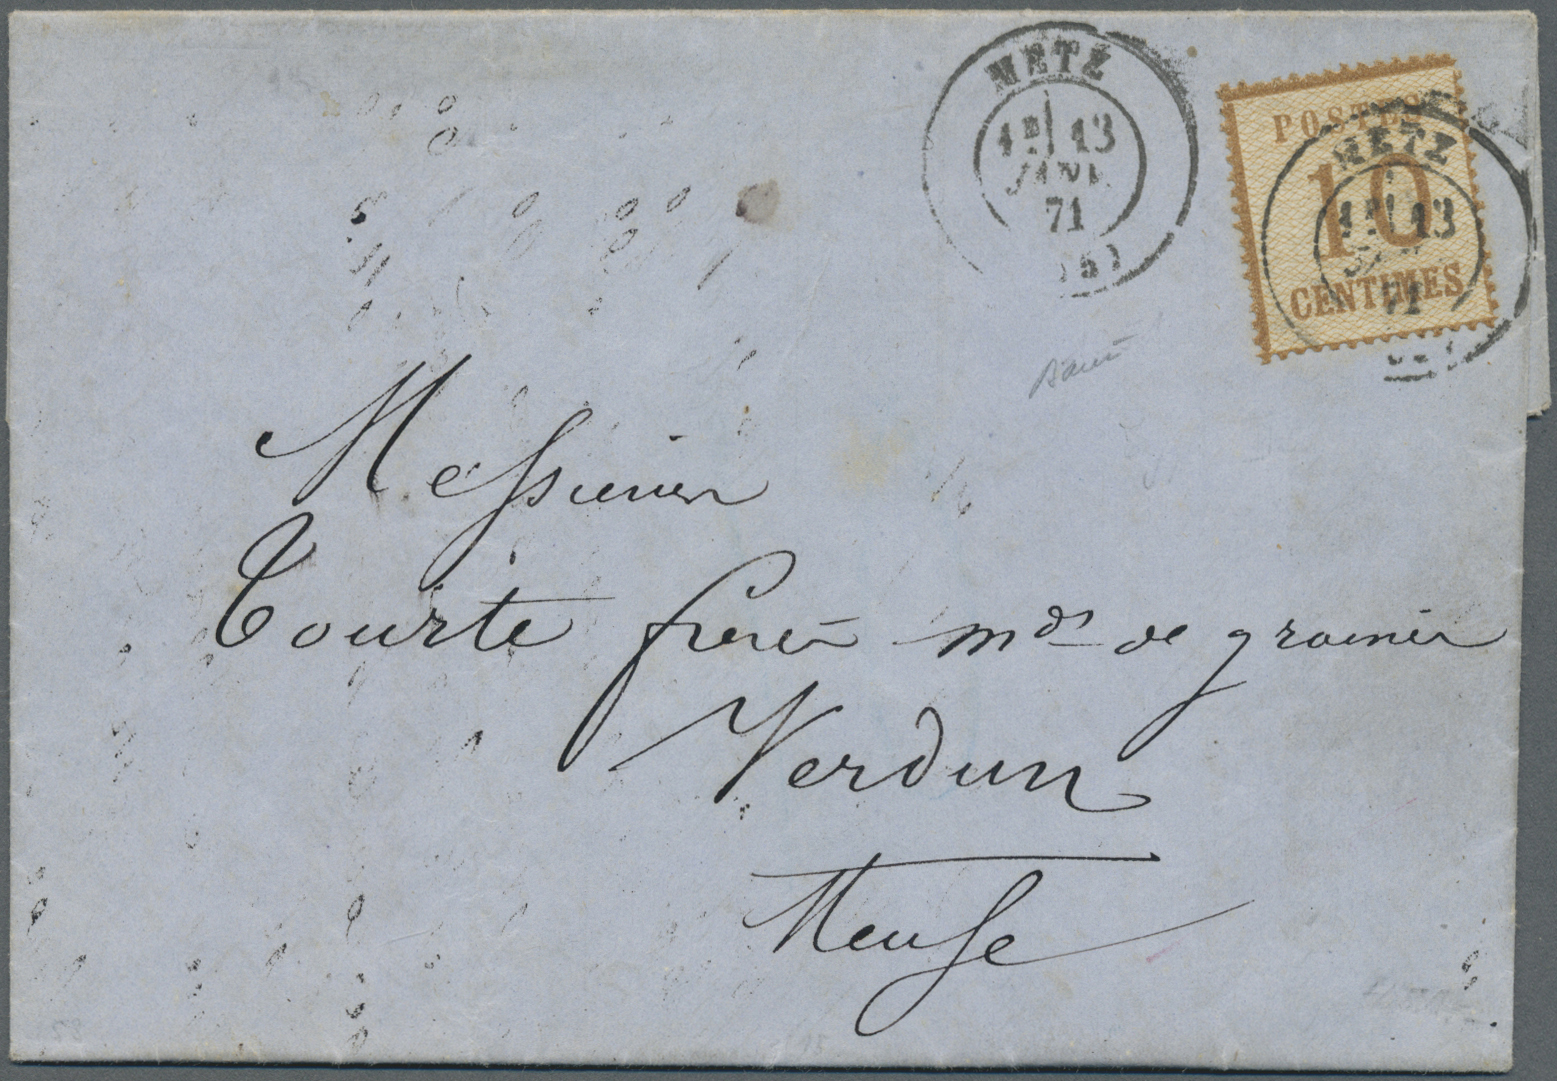 METZ
1E 13
JANV.
71
(55)
POSTES
10
CENTIMES
METZ
1E 13
71
Messieurs
Tourte frères mds de graines
Verdun
Meuse